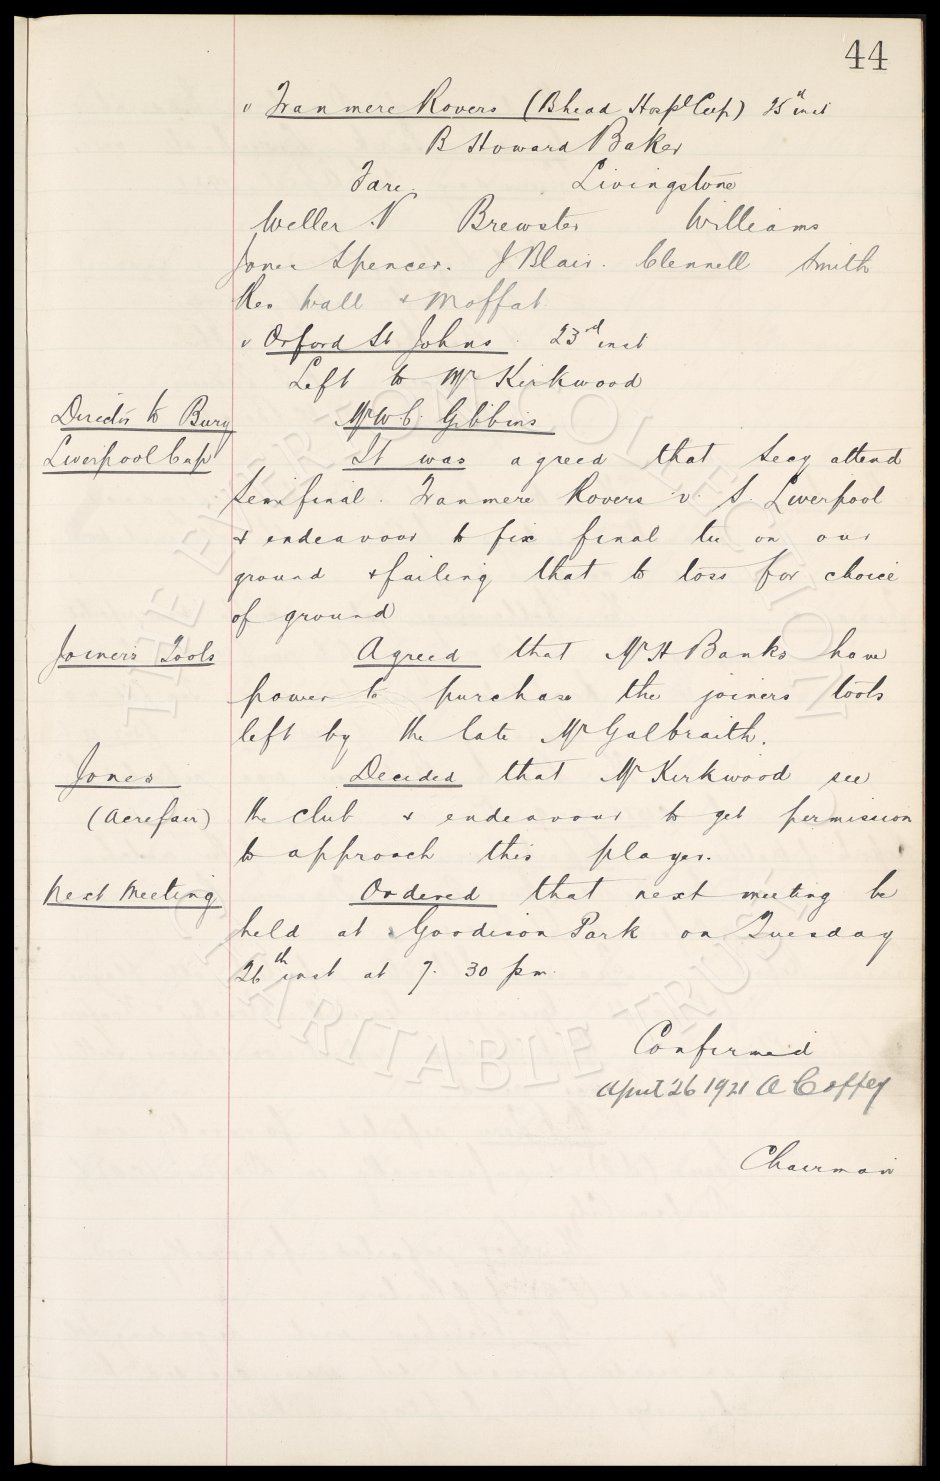 44
v Tranmere Rovers (Bhead Hospl Cup) 25th inst
B Howard Baker
Fare. Livingstone
Weller. V Brewster Williams
Jones Spencer. J Blair. Clennell Smith
Res Wall & Moffat
v Orford St Johns. 23rd inst
Left to Mr Kirkwood
Director to Bury Mr W C. Gibbins
Liverpool Cup It was agreed that Secy attend
Semi final. Tranmere Rovers v. S. Liverpool
& endeavour to fix final tie on our
ground & failing that to toss for choice
of ground
Joiner's Tools Agreed that Mr H Banks have
power to purchase the joiners tools
left by the late Mr Galbraith.
Jones Decided that Mr Kirkwood see
(Acrefair) the club & endeavour to get permission
to approach this player.
Next Meeting Ordered that next meeting be
held at Goodison Park on Tuesday
26th inst at 7. 30 pm.
Confirmed
April 26 1921 A Coffey
Chairman
THE EVERTON COLLECTION
CHARITABLE TRUST